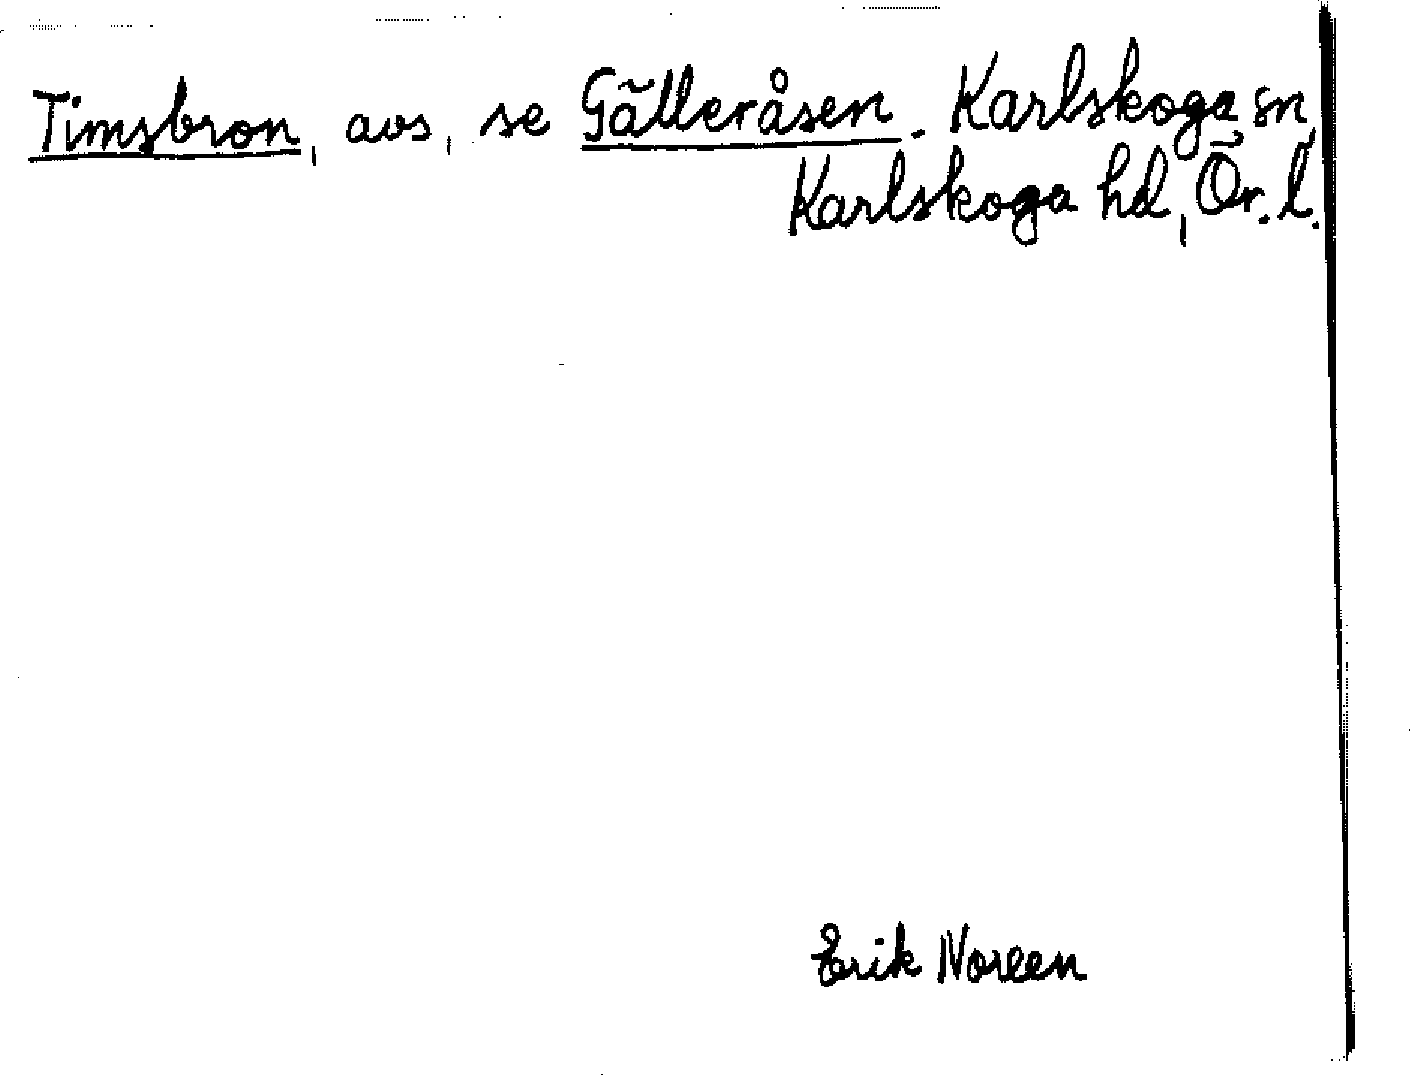 Timsbron, avs, se Gälleråsen. Karlskoga sn,
Karlskoga hd, Ör. l.
Erik Noreen